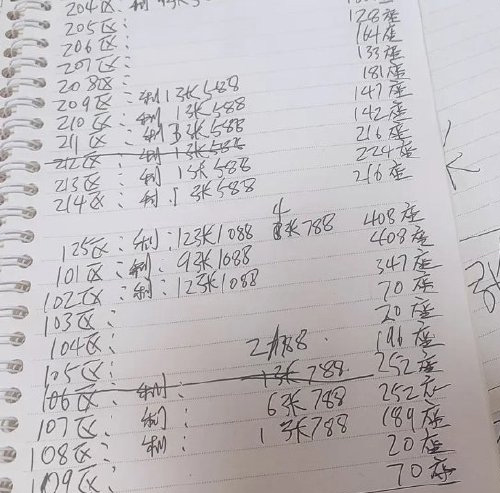 204区: 剩
205区: 128座
206区: 164座
207区: 133座
208区: 181座
209区: 剩13张588 147座
210区: 剩13张588 142座
211区: 剩 3张588 216座
212区: 剩13张588 224座
213区: 剩15张588 216座
214区: 剩 张588
4
125区: 剩:12张1088 张788 408座
101区: 剩:9张1088 408座
102区: 剩:12张1088 347座
103区: 70座
104区: 20座
105区: 2 788 196座
106区: 剩: 13张788 252座
107区: 剩: 6张788 252座
108区: 剩: 1张788 189座
109区: 20座
70座